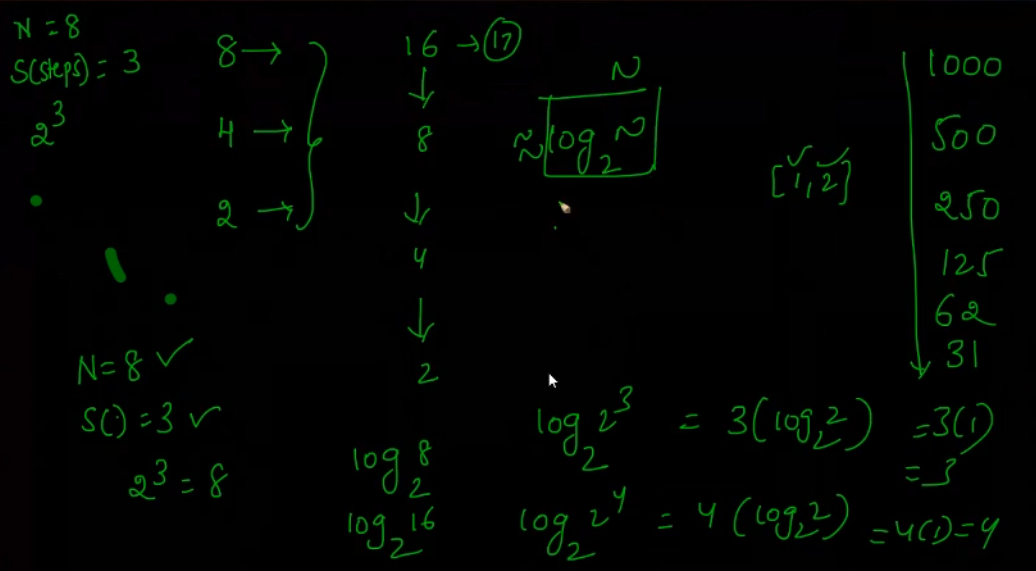 N = 8
S(steps) = 3
2^3
8 →
4 →
2 →
16 → 17
↓
8
↓
4
↓
2
N
≈ log_2 N
[1, 2]
1000
500
250
125
62
31
N = 8 ✓
S(·) = 3 ✓
2^3 = 8
log_2 8
log_2 16
log_2 2^3 = 3(log_2 2) = 3(1)
= 3
log_2 2^4 = 4(log_2 2) = 4(1) = 4